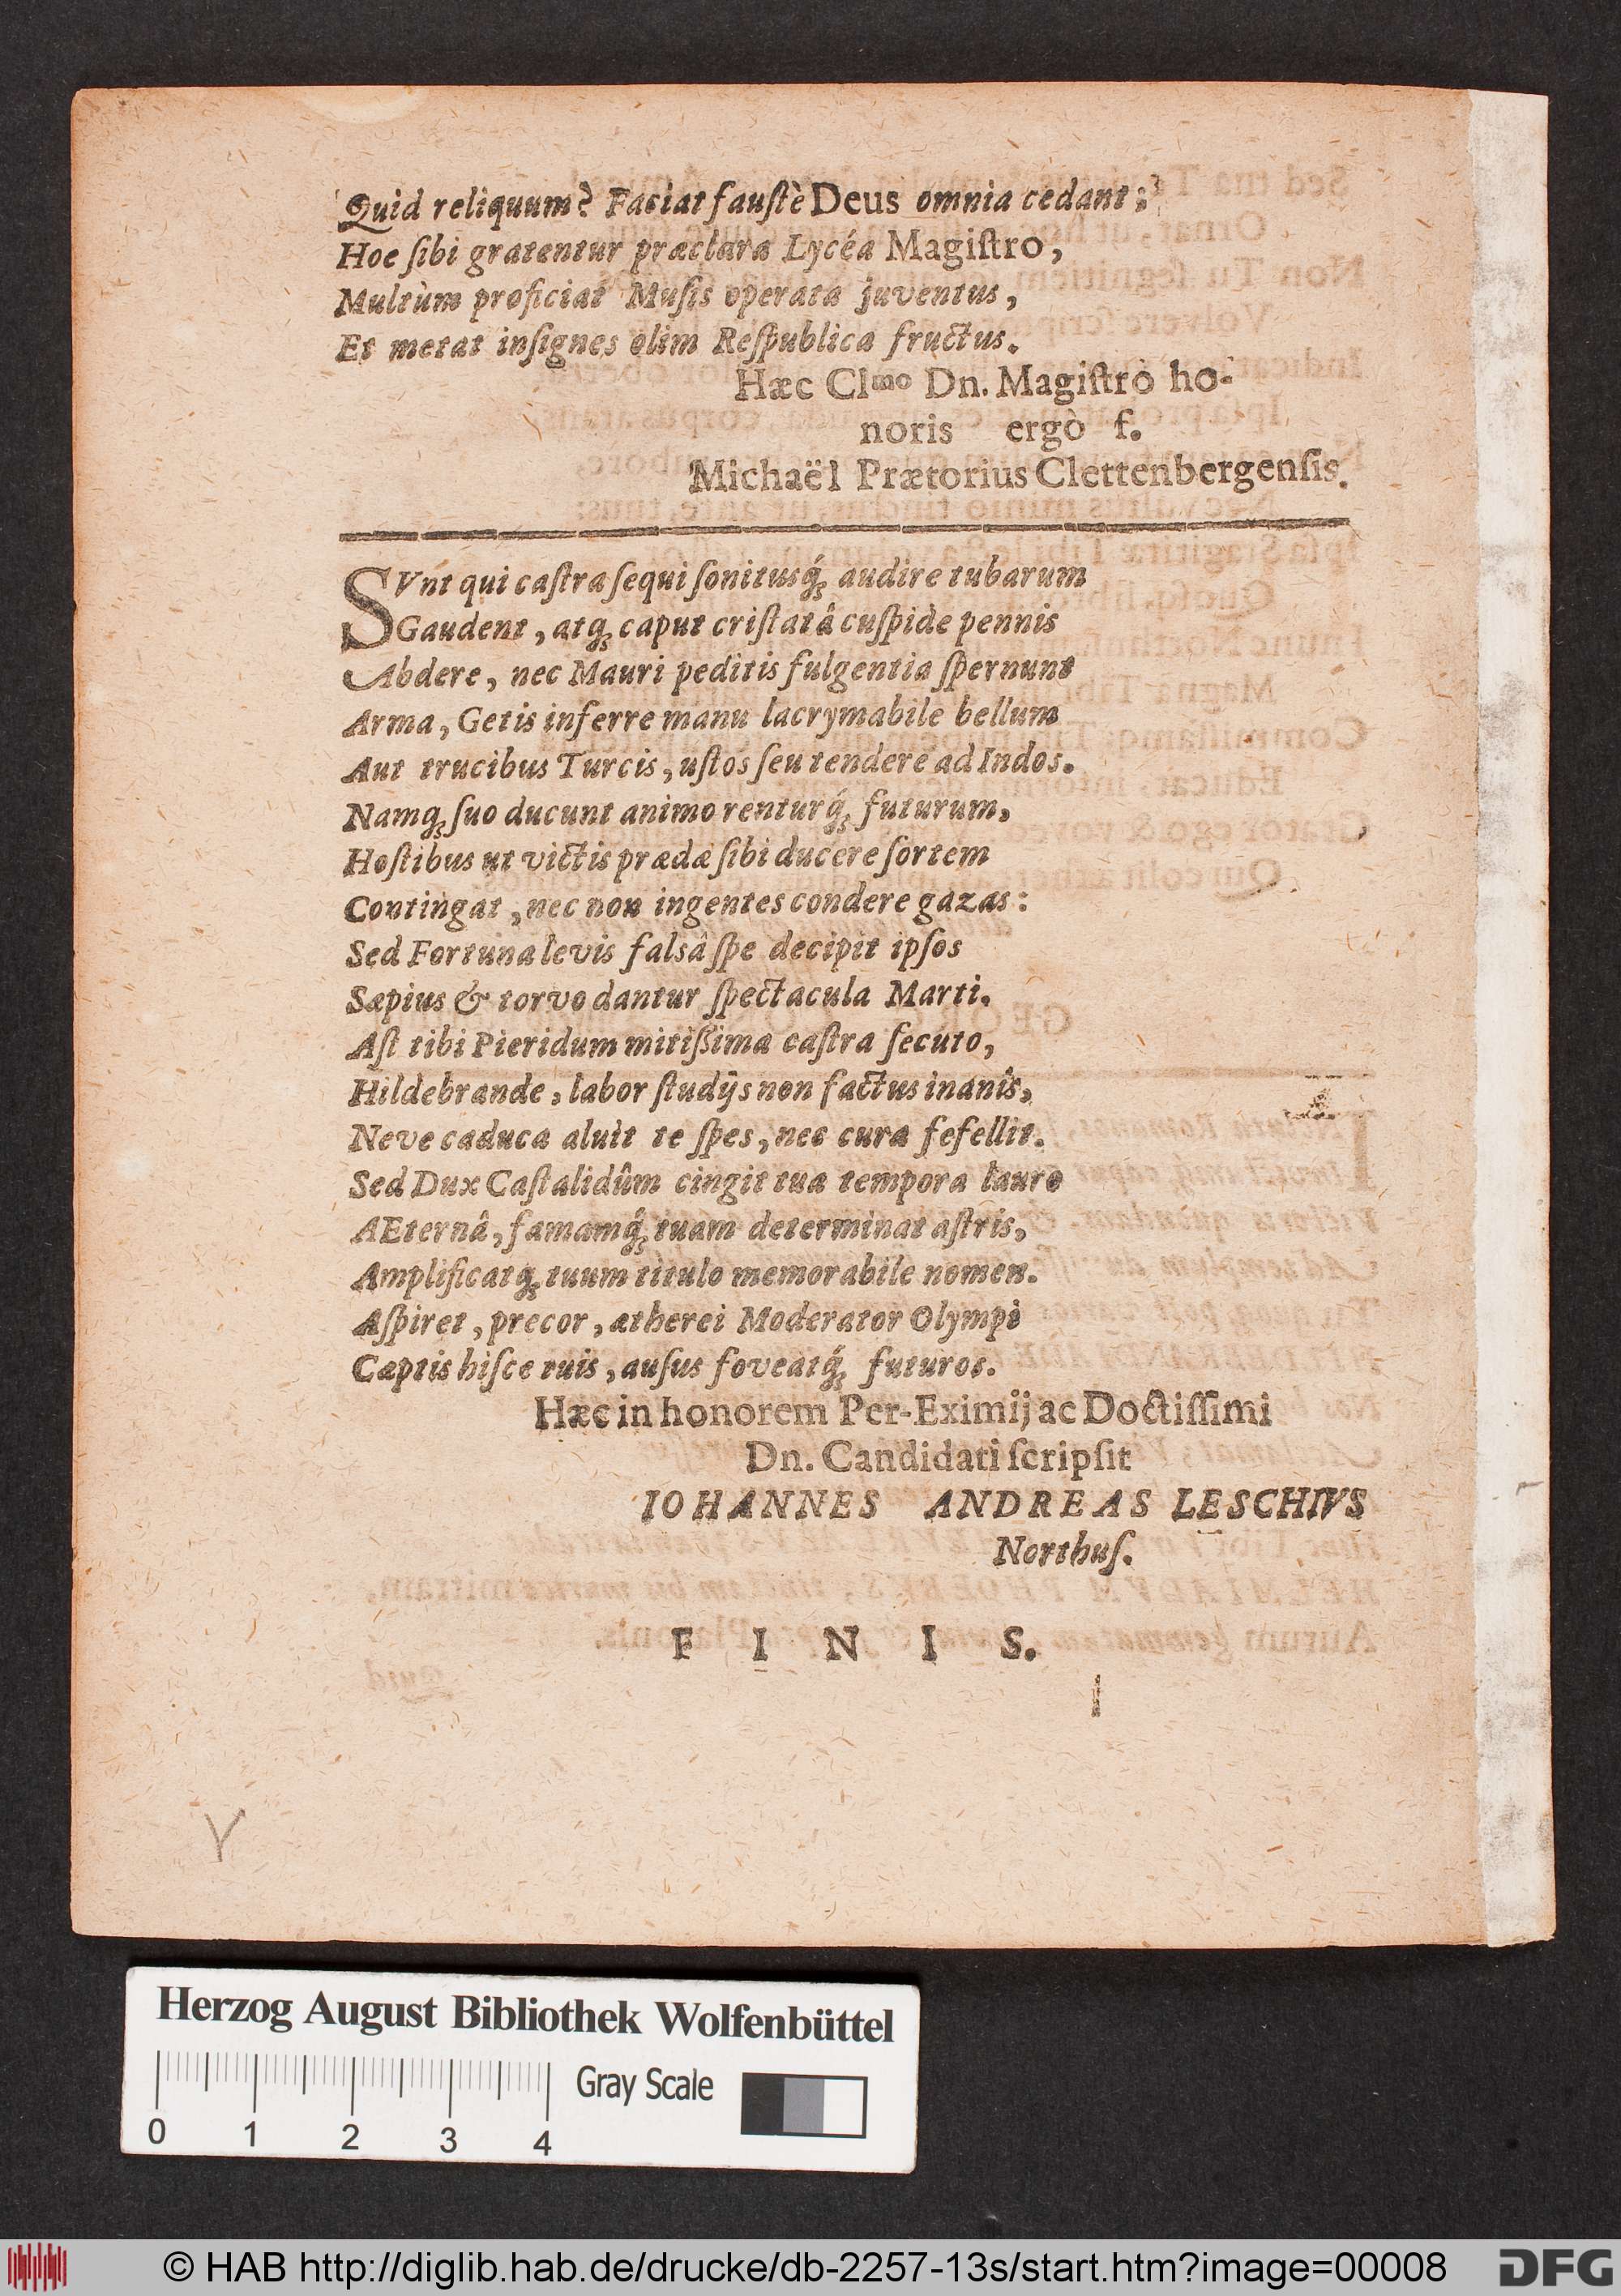 Quid reliquum? Faciat faustè Deus omnia cedant;
Hoc ſibi gratentur præclara Lycéa Magiſtro,
Multùm proficiat Muſis operata juventus,
Et metat inſignes olim Reſpublica fructus.
Hæc Clmo Dn. Magiſtro ho-
noris ergò f.
Michaël Prætorius Clettenbergenſis.
SVnt qui caſtra ſequi ſonitusq́; audire tubarum
Gaudent, atq; caput criſtatâ cuſpide pennis
Abdere, nec Mauri peditis fulgentia ſpernunt
Arma, Getis inferre manu lacrymabile bellum
Aut trucibus Turcis, uſtos ſeu tendere ad Indos.
Namq; ſuo ducunt animo renturq́; futurum,
Hoſtibus ut victis prædæ ſibi ducere ſortem
Contingat, nec non ingentes condere gazas:
Sed Fortuna levis falsâ ſpe decipit ipſos
Sæpius & torvo dantur ſpectacula Marti.
Aſt tibi Pieridum mitiſſima caſtra ſecuto,
Hildebrande, labor ſtudijs non factus inanîs,
Neve caduca aluit te ſpes, nec cura fefellit.
Sed Dux Caſtalidûm cingit tua tempora lauro
AEternâ, famamq́; tuam determinat aſtris,
Amplificatq; tuum titulo memorabile nomen.
Aſpiret, precor, ætherei Moderator Olympi
Cæptis hiſce tuis, auſus foveatq́; futuros.
Hæc in honorem Per-Eximij ac Doctiſſimi
Dn. Candidati ſcripſit
IOHANNES ANDREAS LESCHIVS
Northuſ.
F I N I S.
Herzog August Bibliothek Wolfenbüttel
Gray Scale
0 1 2 3 4
© HAB http://diglib.hab.de/drucke/db-2257-13s/start.htm?image=00008
DFG